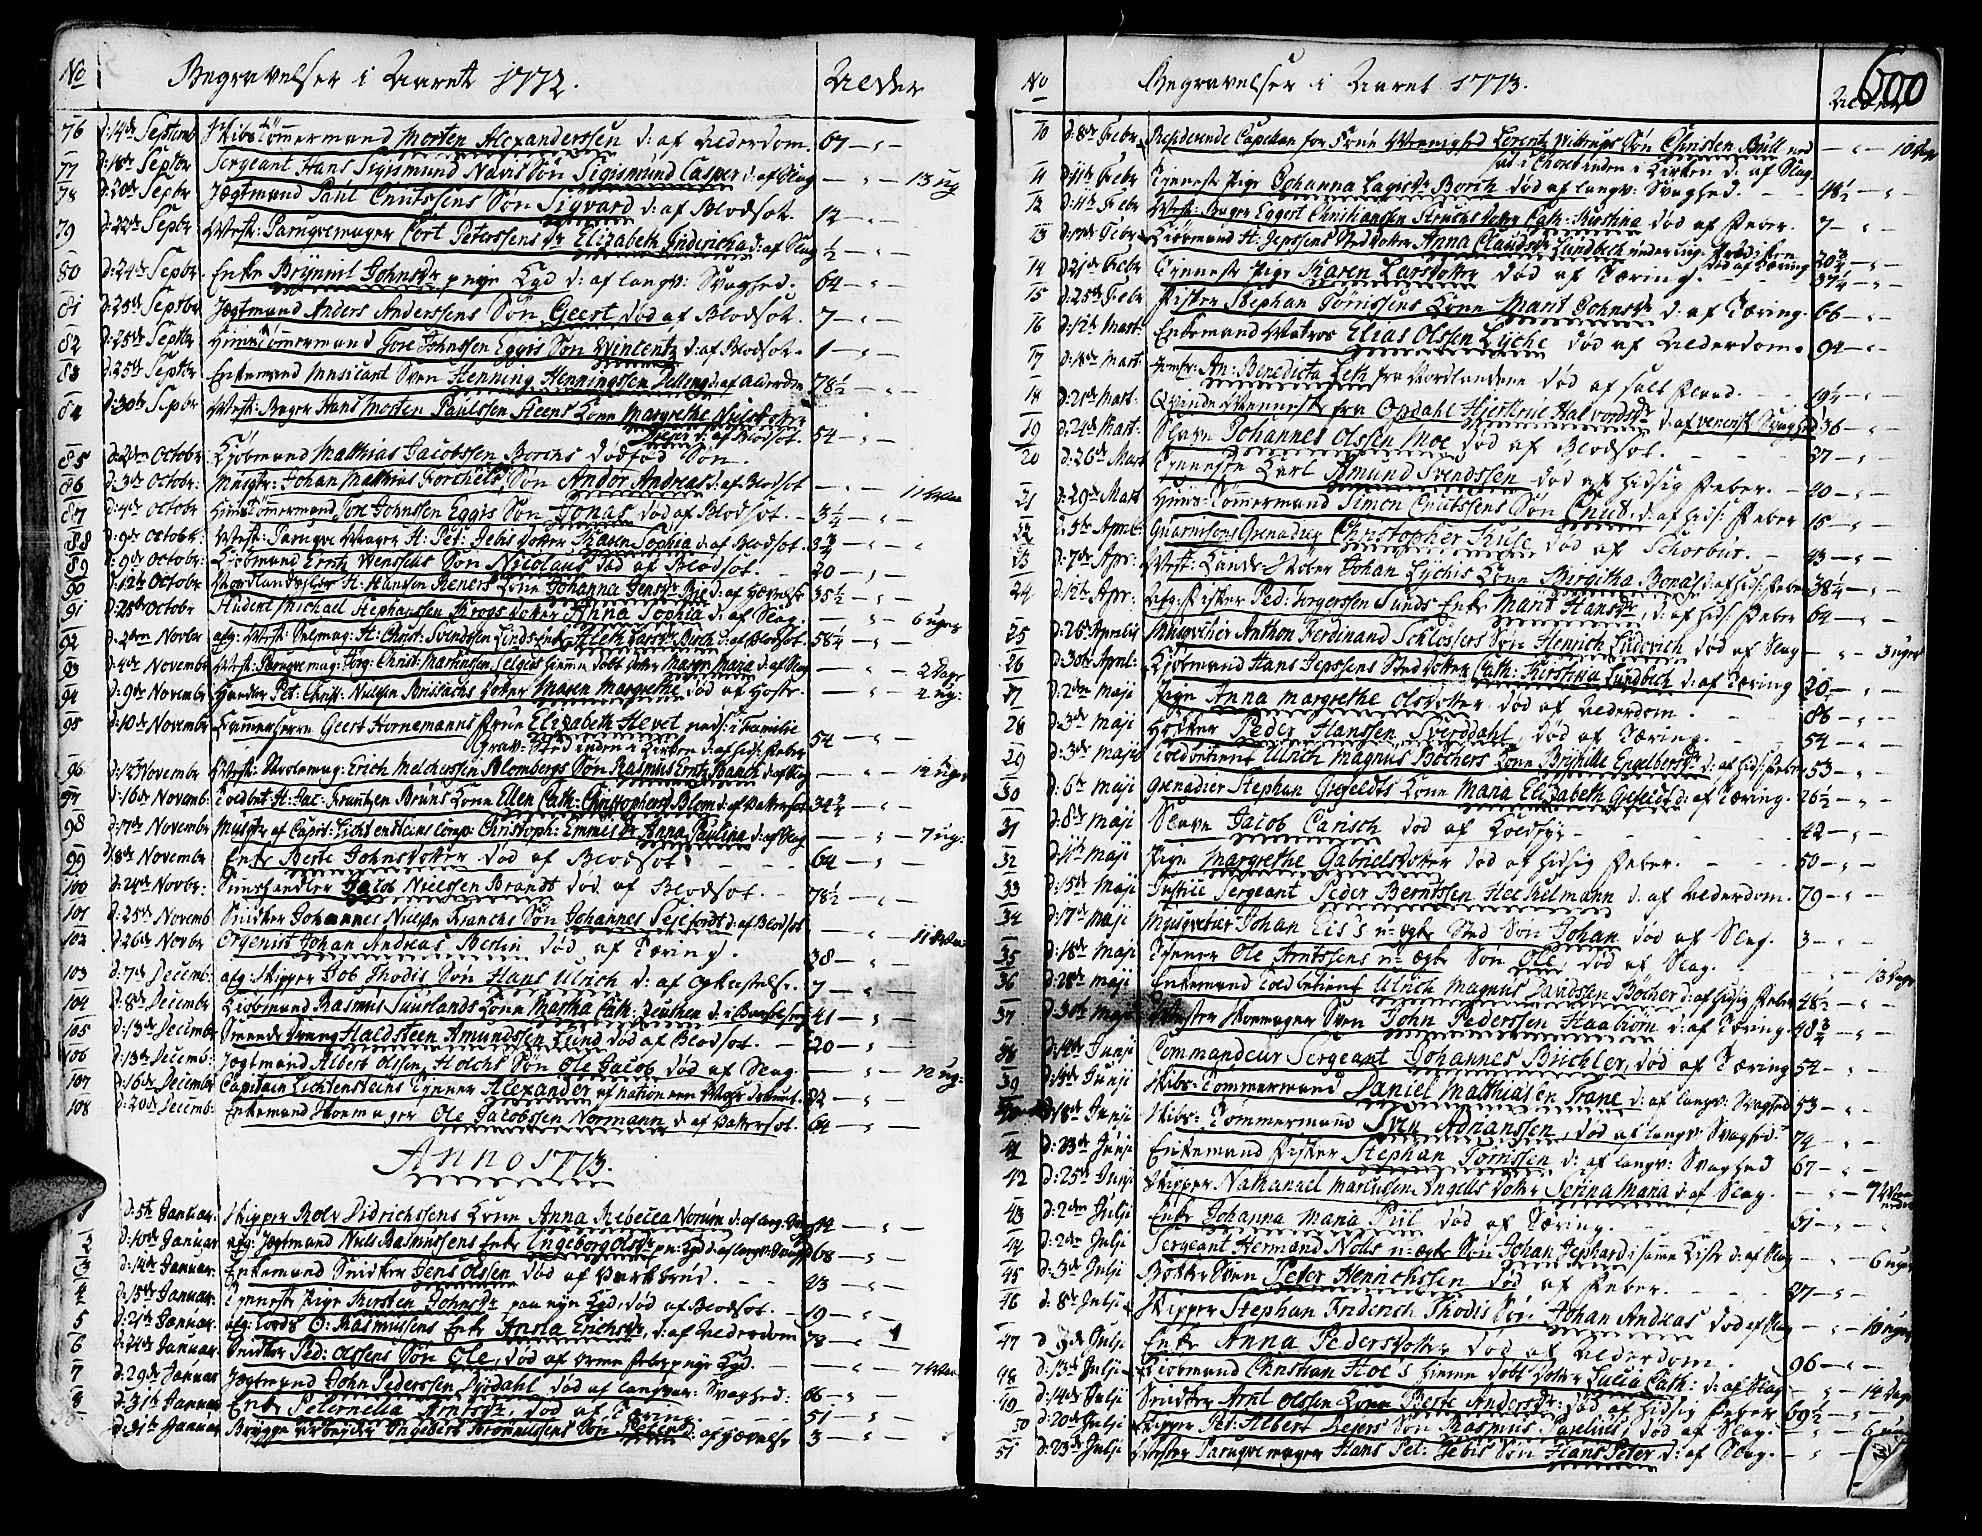 No Begravelser i Aaret 1772. Alder
76 d: 14de Septemb Skibstömmermand Morten Alexanderssen d: af Alderdom. 67 — " —
77 d: 18de Septbr Sergeant Hans Sigismund Navis Sön Sigismund Casper d: af Slag — " — 13 ug
78 d: 20de Septbr Jægtmand Paul Cnutssens Sön Sigvard d: af Blodsot. 12 — " —
79 d: 22de Septbr Mestr: Paruqvemager Cort Peterssens dr Elizabeth Fridericha d: af Slag ½ — " —
80 d: 24de Septbr. Enke Brynnil Johnsdr p nye Kgd d: af langv: Svaghed. 64 — " —
81 d: 25de Septbr Jægtmand Anders Anderssens Sön Geert död af Blodsot. 7 — " —
82 d: 25de Septbr Huustömmermand Tore Johnssen Eggis Sön Vintentz d: af Blodsot. 1 — " —
83 d: 25de Septbr Enkemand Musicant Sven Henning Henningssen Felling d: af Alderdom 78½ — " —
84 d: 30te Septbr Mestr: Bager Hans Morten Paulssen Steens Kone Margrethe Nielsdr
d: af Blodsot. 54 — " —
85 d: 2den Octobr Kjöbmand Matthias Jacobssen Borchs dödföd Sön.
86 d: 3de Octobr: Musqtr: Johan Mathias Forchels Sön Andor Andreas d: af Blodsot — " — 11 Uker
87 d: 4de Octobr Huustömmermand Tore Johnssen Eggis Sön Jonas död af Blodsot. 3¼ — " —
88 d: 9de Octobr: Mestr: Paruqve Mager H: Pet: Jebis dotter Karen Sophia d: af Blodsot. 3¾ — " —
89 d: 9de Octobr: Kjöbmand Erntz Wensels Sön Nicolaus död af Blodsot. 20 — " —
90 d: 12te Octobr Nordlandsfar H: Hansen Beners Kone Johanna Jensdr Bie d: af Hævelse 35½ — " —
91 d: 25de Octobr Student Michael Stephanssen Krogs dotter Anna Sophia d: af Slag. — " — 6 uger
92 d: 2den Novbr afg: Mestr: Felmag: H: Christ: Svendssen Linds Enke Aleth Larsdr Birch d: af Blodsot. 58¼ — " —
93 d: 4de Novembr Mestr: Paruqvemag: Jörg: Christ: Martinssen Selgiis hjemme döbt dotter Maren Maria d: af Slag — " — 2 Dage
94 d: 9de Novembr Handler Pet: Christ: Nielsen Brisachs dotter Maren Margrethe död af Hoste. — " — 4 ug:
95 d: 10de Novembr Kammerherre Geert Hornemanns Frue Elizabeth Hevet neds: i Familie
Grav-Sted inden i Kirken d: af hids: Feber 54 — " —
96 d: 12te Novembr Mestr: Skolemag: Erich Melcherssen Blombergs Sön Rasmus Erntz Banch d: af Slag — " — 12 uger
97 d: 16de Novemb: Toldbet: H: Jac: Frantzen Bruns Kone Ellen Cath: Christophersdr Blom d: af Vattersot 34¾ — " —
98 d: 17de Novembr Musqtr af Capit: Lichtensteins Comp: Christoph: Emmes dr Anna Paulina d: af Slag — " — 7 ug:
99 d: 18de Novembr Enke Berte Johnsdotter död af Blodsot 64 — " —
100 d: 24de Novbr: Smaahandler Jacob Nielssen Brandt död. af Blodsot. 78½ — " —
101 d: 25de Novemb Snidker Johannes Nielsen Kranchs Sön Johannes Tejefordt d: af Blodsot — " — 11 Uker
102 d: 26de Novbr Orgenist Johan Andreas Berlin död af Tæring. 38 — " —
103 d: 7de Decemb: afg: Skipper Job Thodis Sön Hans Ulrich d: af Opkastelse. 7 — " —
104 d: 8de Decembr Kjöbmand Rasmus Suurlands Kone Martha Cath: Deuthen d: i Barselseng 41 — " —
105 d: 13de Decembr Smede Svend Haldsteen Amundssen Lund död af Blodsot. — 20 — " —
106 d: 13de Decemb: Jægtmand Albert Olssen Holchs Sön Ole Jacob död af Slag — " — 12 ug:
107 d: 16de Decembr Capitain Lichtensteins Tjenner Alexander af nation een Mohr 22 — " —
108 d: 20de Decemb: Enkemand Skoemager Ole Jacobssen Normann d. af Vattersot. 64 — " —
Anno 1773.
1 d: 5te Januar. Skipper Rolv Didrichssens Kone Anna Rebecca Norum d: af lang: Svag 44 — " —
2 d: 10de Januar afg: Jægtmand Niels Rasmussens Enke Ingeborg Olsdr pn: Kgd d: af langv: Svagh 68 — " —
3 d: 14de Januar. Enkemand Snidker Jens Olssen död af Værkbrud. 43 — " —
4 d: 15de Januar. Tjenneste Pige Kirsten Johnsdr paa nye Kgd, död af Blodsot. 19 — " —
5 d: 21de Januar. afg: Lods O: Rasmussens Enke Ansla Erichsdr, d: af Alderdom 78 — " —
6 d: 24de Januar. Snidker Ped: Olssens Sön Ole, död af Orme Feber p nye Kgd. — " —
7 d: 29de Januar Jægtmand John Pederssen Dysdahl död af langvar: Svaghed: 66 — " — 7 Uker
8 d: 31te Januar Enke Peternella Arntsdr, död af Tæring 51 — " —
d: 31te Januar Brygge Arbejder Ingebert Toronssens Sön Peter d: af Hævelse 3 — " —
No Begravelser i Aaret 1773. Alder 600
10 d: 8de Febr Residerende Capellan for Frue Menighed Lorentz Wittrups Sön Christen Bull ned
sat i Chor inden i Kirken d: af Slag — " — 10 Dage
11 d: 11te Febr Tjenneste Pige Johanna Lagisdr Borch död af langv: Svaghed. 48½ — "
12 d: 14de Febr Mestr: Bager Eggert Christianssen Struchs dotter Cath: Kirstina död af Feber. 7 — " —
13 d: 17de Febr Kiöbmand H: Jepssens Sted dotter Anna Claudsdr Lundbech
död af Tæring 20¾ — " —
14 d: 21de Febr Tjenneste Pige Karen Larsdotter död af Tæring. 37¼ — " —
15 d: 25de Febr Fisker Stephan Törrissens Kone Marit Johnsdr d: af Tæring. 66 — " —
16 d: 12te Mart. Enkemand Matros Elias Olssen Lyche död af Alderdom. 94 — " —
17 d: 18de Mart. Jomfr: An: Benedicta Leth fra Nordlandene död af salt Flaad. 19½ — " —
18 d: 21de Mart. Qvinde Menneske fra Opdahl Hjertrue Halvordsdr d: af venerisk Svaghed 36 — " —
19 d: 24de Mart: Slave Johannes Olssen Moe död af Blodsot. 37 — " —
20 d: 26de Mart Tjenneste Karl Amund Svendssen död af hidsig Feber. 40 — " —
21 d: 29de Mart Huus-Tömmermand Simon Cnutssens Sön Cnut. d: af hids: Feber 15 — " —
22 d: 5te April: Guarnisons Grenadeer Christopher Kule död af Schorbut. 43 — " —
23 d: 7de Apr: Mestr: Kande Stöber Johan Lychis Kone Birgitha Bonas d: af hids: Feber 38¼ — " —
24 d: 12te Apr: Afg: Fisker Ped: Torgerssen Sunds Enke Marit Hansdr, d: af hids: Feber 64 — " —
25 d: 26de Aprilis Musqveteer Anthon Ferdinand Schlosers Sön Henrich Ludvich död af Slag — " — 3 uger
26 d: 30te April: Kjöbmand Hans Jepssens Sted dotter Cath: Kirstina Lundbech d: af Tæring 20 — " —
27 d: 2den Maji Pige Anna Margrethe Olsdotter, död af Alderdom. 86 — " —
28 d: 3de Maji Höcker Peder Hanssen Sverddahl, död af Tæring. 54 — " —
29 d: 3de Maji Toldbetient Ulrich Magnus Böchers Kone Birghitte Engelbersdr d: af hids: Feber 53 — " —
30 d: 6te Maji Grenadier Stephan Grefeldts Kone Maria Elizabeth Grefeldt d: af Tæring. 26½ — " —
31 d: 8de Maji Slave Jacob Carisch död af Koldsyge 42 — " —
32 d: 11te Maji Pige Margrethe Gabrielsdotter död af hidsig Feber. 50 — " —
33 d: 15de Maji Justice Sergeant Peder Berntssen Hechelmann d: af Alderdom. 79 — " —
34 d: 17de Maji Musqveteer Johan Eis's u-ægte Sted Sön Johan död af Slag. 3 — " —
35 d: 18de Maji Tjenner Ole Arntssens u-ægte Sön Ole, död af Slag. — " — 13 Dage
36 d: 28de Maji Enkemand Toldbetient Ulrich Magnus Davidssen Böcher d: af hidsig Feber 48½ — " —
37 d: 30te Maji Mester Skoemager Sven John Pederssen Haabiörn d: af Tæring. 48¾ — " —
38 d: 14de Junji Commandeur Sergeant Johannes Büchler, död af Tæring 54 — " —
39 d: 15de Junji Skibs-Tommermand Daniel Matthiassen Trane d: af langv: Svaghed 53 — " —
d: 18de Junji Skibs-Tommermand Sven Adriansen, död af langv: Svaghed. 74 — " —
41 d: 23de Junji Enkemand Fisker Stephan Törrissen d: af langv: Svaghed 67 — " —
42 d: 25de Junji Skipper Nathanael Marcussen Ingells dotter Serina Maria d: af Slag. — " — 7 Uker
43 d: 2den Julji Enke Johanna Maria Piil död af Tæring. 51 — " —
44 d: 2den Julji Sergeant Hermand Nolts u-ægte Sön Johan Jephard i samme Kiste d: af Slag — " — 6 uger
45 d: 3de Julji Bötker Sven Peter Henrichssen död af Feber. 27 — " —
46 d: 8de Julji Skipper Stephan Friderich Thodis Sön Johan Andreas död af Slag — " — 10 uger
47 d 9de Julji Enke Anna Pedersdotter död af Alderdom. 96 — " —
48 d: 13de Julji Kiöbmand Christian Hoe's hjemme döbt dotter Lucia Cath: d: af Slag — " — 14 dage
49 d: 14de Julji Snidker Arnt Olssen Kone Berte Andersdr: död af hidsig Feber 69½ — " —
50 d: 20de Julji Skipper Pet: Albert Bejers Sön Rasmus Parelius, död af Slag. — " — 6 uger
51 d: 23de Julji Mester Paruqvemager Hans Pet: Jebis Sön Hans Peter d: af Slag. — " —